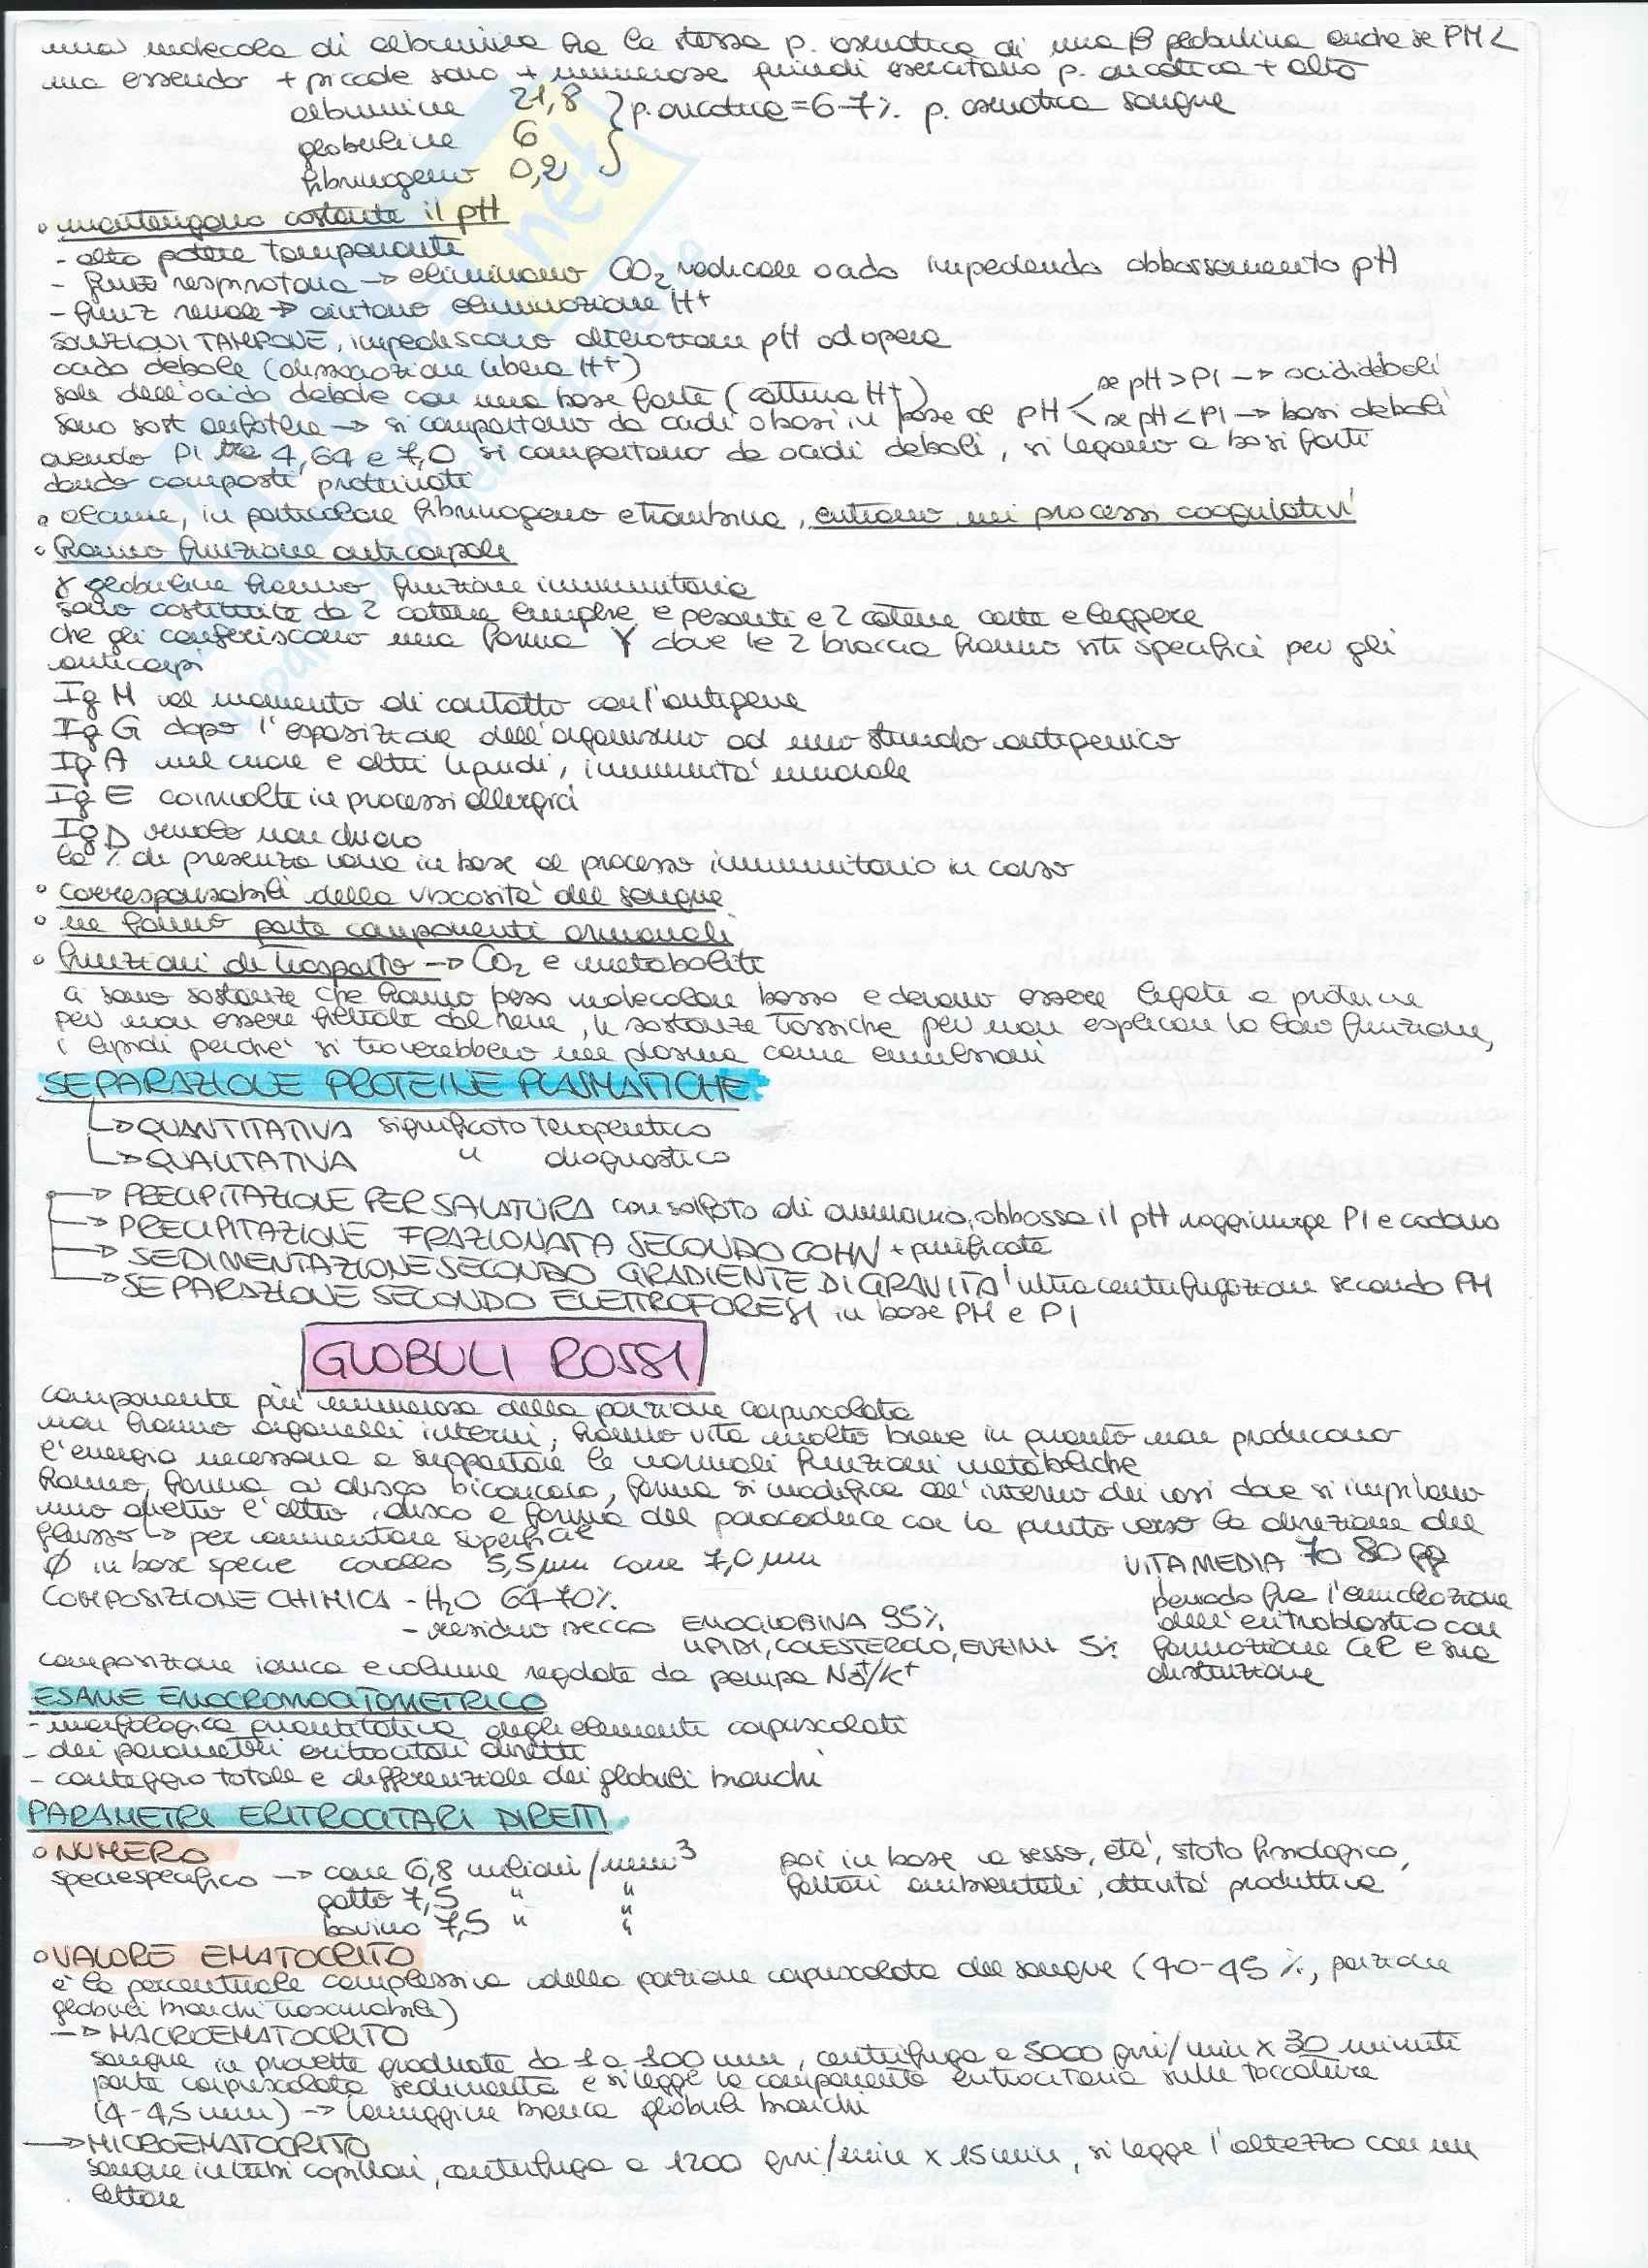 una molecola di albumina ha la stessa p. osmotica di una β globulina anche se PM <
ma essendo + piccole sono + numerose quindi esercitano p. oncotica + alta
albumine 21,8 } p. oncotica = 6-7% p. osmotica sangue
globuline 6
fibrinogeno 0,2
° mantengono costante il pH
- alto potere tamponante
- funz respiratoria → eliminano CO2 radicale acido impedendo abbassamento pH
- funz renale → aiutano eliminazione H+
SOLUZIONI TAMPONE, impediscono alterazioni pH ad opera
acido debole (dissociazione libera H+)
sale dell'acido debole con una base forte (cattura H+)
sono sost anfotere → si comportano da acidi o basi in base al pH < se pH > PI → acidi deboli
se pH < PI → basi deboli
avendo PI tra 4,64 e 7,0 si comportano da acidi deboli, si legano a basi forti
dando composti proteinati
° alcune, in particolare fibrinogeno e trombina, entrano nei processi coagulativi
° hanno funzione anticorpale
γ globuline hanno funzione immunitaria
sono costituite da 2 catene lunghe e pesanti e 2 catene corte e leggere
che gli conferiscono una forma Y dove le 2 braccia hanno siti specifici per gli
anticorpi
Ig M al momento di contatto con l'antigene
Ig G dopo l'esposizione dell'organismo ad uno stimolo antigenico
Ig A nel cuore e altri liquidi, immunità mucosale
Ig E coinvolte in processi allergici
Ig D ruolo non chiaro
la % di presenza varia in base al processo immunitario in corso
° corresponsabili della viscosità del sangue
° ne fanno parte componenti ormonali
° funzioni di trasporto → CO2 e metaboliti
ci sono sostanze che hanno peso molecolare basso e devono essere legate a proteine
per non essere filtrate dal rene, le sostanze tossiche per non esplicare la loro funzione,
i lipidi perchè si troverebbero nel plasma come emulsioni
SEPARAZIONE PROTEINE PLASMATICHE
→ QUANTITATIVA significato terapeutico
→ QUALITATIVA " diagnostico
→ PRECIPITAZIONE PER SALATURA con solfato di ammonio, abbassa il pH raggiunge PI e cadono
→ PRECIPITAZIONE FRAZIONATA SECONDO COHN + purificate
→ SEDIMENTAZIONE SECONDO GRADIENTE DI GRAVITA' ultracentrifugazione secondo PM
→ SEPARAZIONE SECONDO ELETTROFORESI in base PM e PI
GLOBULI ROSSI
componente più numerosa della porzione corpuscolata
non hanno organelli interni, hanno vita molto breve in quanto non producono
l'energia necessaria a supportare le normali funzioni metaboliche
hanno forma a disco biconcavo, forma si modifica all'interno dei vasi dove si impilano
uno dietro l'altro, disco a forma del paracadute con la punta verso la direzione del
flusso → per aumentare superficie
Ø in base specie cavallo 5,5 µm cane 7,0 µm
VITA MEDIA 70 80 gg
periodo fra l'enucleazione
dell'eritroblasto con
formazione GR e sua
distruzione
COMPOSIZIONE CHIMICA - H2O 64-70%
- residuo secco EMOGLOBINA 95%
LIPIDI, COLESTEROLO, ENZIMI 5%
composizione ionica e volume regolate da pompa Na+/K+
ESAME EMOCROMOCITOMETRICO
- morfologica quantitativa degli elementi corpuscolati
- dei parametri eritrocitari diretti
- conteggio totale e differenziale dei globuli bianchi
PARAMETRI ERITROCITARI DIRETTI
° NUMERO
speciespecifico → cane 6,8 milioni/mm3
gatto 7,5 " "
bovino 7,5 " "
poi in base a sesso, età, stato fisiologico,
fattori ambientali, attività produttiva
° VALORE EMATOCRITO
è la percentuale complessiva della porzione corpuscolata del sangue (40-45%, porzione
globuli bianchi trascurabile)
→ MACROEMATOCRITO
sangue in provette graduate da 1 a 100 mm, centrifuga a 3000 giri/min x 30 minuti
parte corpuscolata sedimenta e si legge la componente eritrocitaria sulle taccature
(4-4,5 mm) → lanuggine bianca globuli bianchi
→ MICROEMATOCRITO
sangue in tubi capillari, centrifuga a 1200 giri/min x 15 min, si legge l'altezza con un
lettore